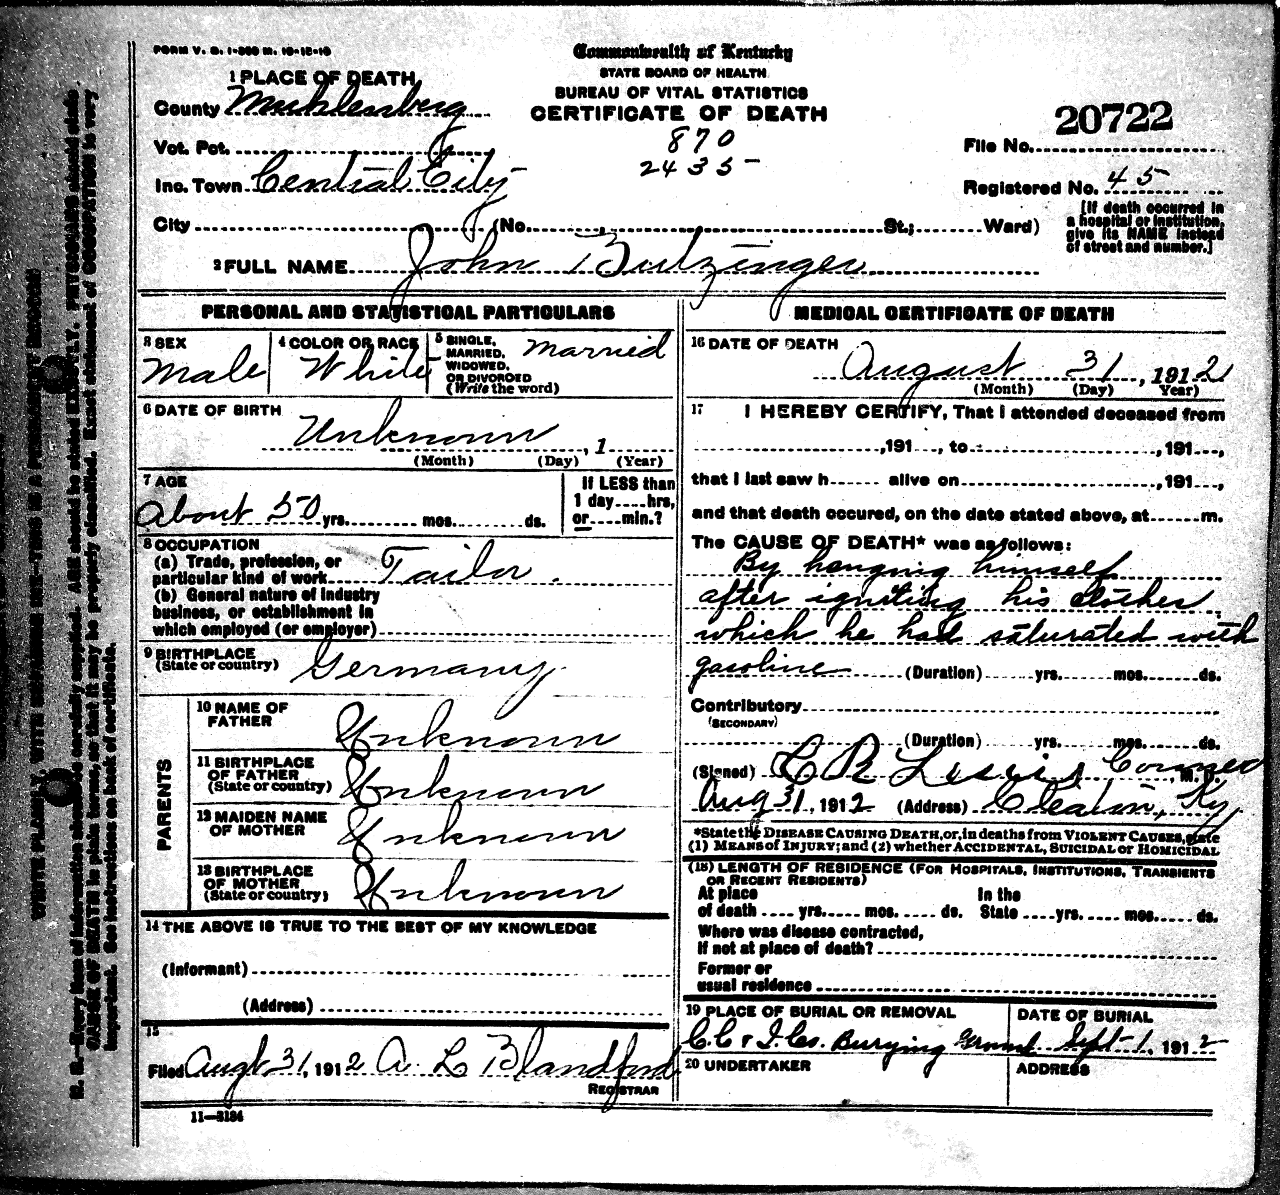 FORM V. S. 1-
Commonwealth of Kentucky
STATE BOARD OF HEALTH
BUREAU OF VITAL STATISTICS
CERTIFICATE OF DEATH
1 PLACE OF DEATH
County Muhlenberg
Vot. Pct.
Inc. Town Central City
City (No. St.; Ward)
870
2435
20722
File No.
Registered No. 45
[If death occurred in
a hospital or institution,
give its NAME instead
of street and number.]
2 FULL NAME John Butzinger
PERSONAL AND STATISTICAL PARTICULARS
3 SEX
Male
4 COLOR OR RACE
White
5 SINGLE,
MARRIED,
WIDOWED,
OR DIVORCED
(Write the word)
Married
6 DATE OF BIRTH
Unknown , 1
(Month) (Day) (Year)
7 AGE
About 50 yrs. mos. ds.
If LESS than
1 day hrs,
or min.?
8 OCCUPATION
(a) Trade, profession, or
particular kind of work Tailor.
(b) General nature of industry
business, or establishment in
which employed (or employer)
9 BIRTHPLACE
(State or country) Germany.
PARENTS
10 NAME OF
FATHER Unknown
11 BIRTHPLACE
OF FATHER
(State or country) Unknown
12 MAIDEN NAME
OF MOTHER Unknown
13 BIRTHPLACE
OF MOTHER
(State or country) Unknown
14 THE ABOVE IS TRUE TO THE BEST OF MY KNOWLEDGE
(Informant)
(Address)
15
Filed Augt 31, 1912 A L Blandford
REGISTRAR
11—3184
MEDICAL CERTIFICATE OF DEATH
16 DATE OF DEATH
August 31, 1912
(Month) (Day) Year)
17 I HEREBY CERTIFY, That I attended deceased from
,191 , to ,191 ,
that I last saw h alive on ,191 ,
and that death occured, on the date stated above, at m.
The CAUSE OF DEATH* was as follows:
By hanging himself
after igniting his clothes
which he had saturated with
gasoline (Duration) yrs. mos. ds.
Contributory
(SECONDARY)
(Duration) yrs. mos. ds.
(Signed) C R Lewis Coroner, M. D.
Aug 31, 1912 (Address) Cleaton, Ky
*State the DISEASE CAUSING DEATH, or, in deaths from VIOLENT CAUSES, state
(1) MEANS of INJURY; and (2) whether ACCIDENTAL, SUICIDAL or HOMICIDAL
(18) LENGTH OF RESIDENCE (FOR HOSPITALS, INSTITUTIONS, TRANSIENTS
OR RECENT RESIDENTS)
At place In the
of death yrs. mos. ds. State yrs. mos. ds.
Where was disease contracted,
if not at place of death?
Former or
usual residence
19 PLACE OF BURIAL OR REMOVAL
C.C & I. Co. Burying Ground
DATE OF BURIAL
Sept-1, 1912
20 UNDERTAKER
ADDRESS
WRITE PLAINLY, WITH UNFADING INK—THIS IS A PERMANENT RECORD
N. B.—Every item of information should be carefully supplied. AGE should be stated EXACTLY. PHYSICIANS should state
CAUSE OF DEATH in plain terms, so that it may be properly classified. Exact statement of OCCUPATION is very
important. See instructions on back of certificate.